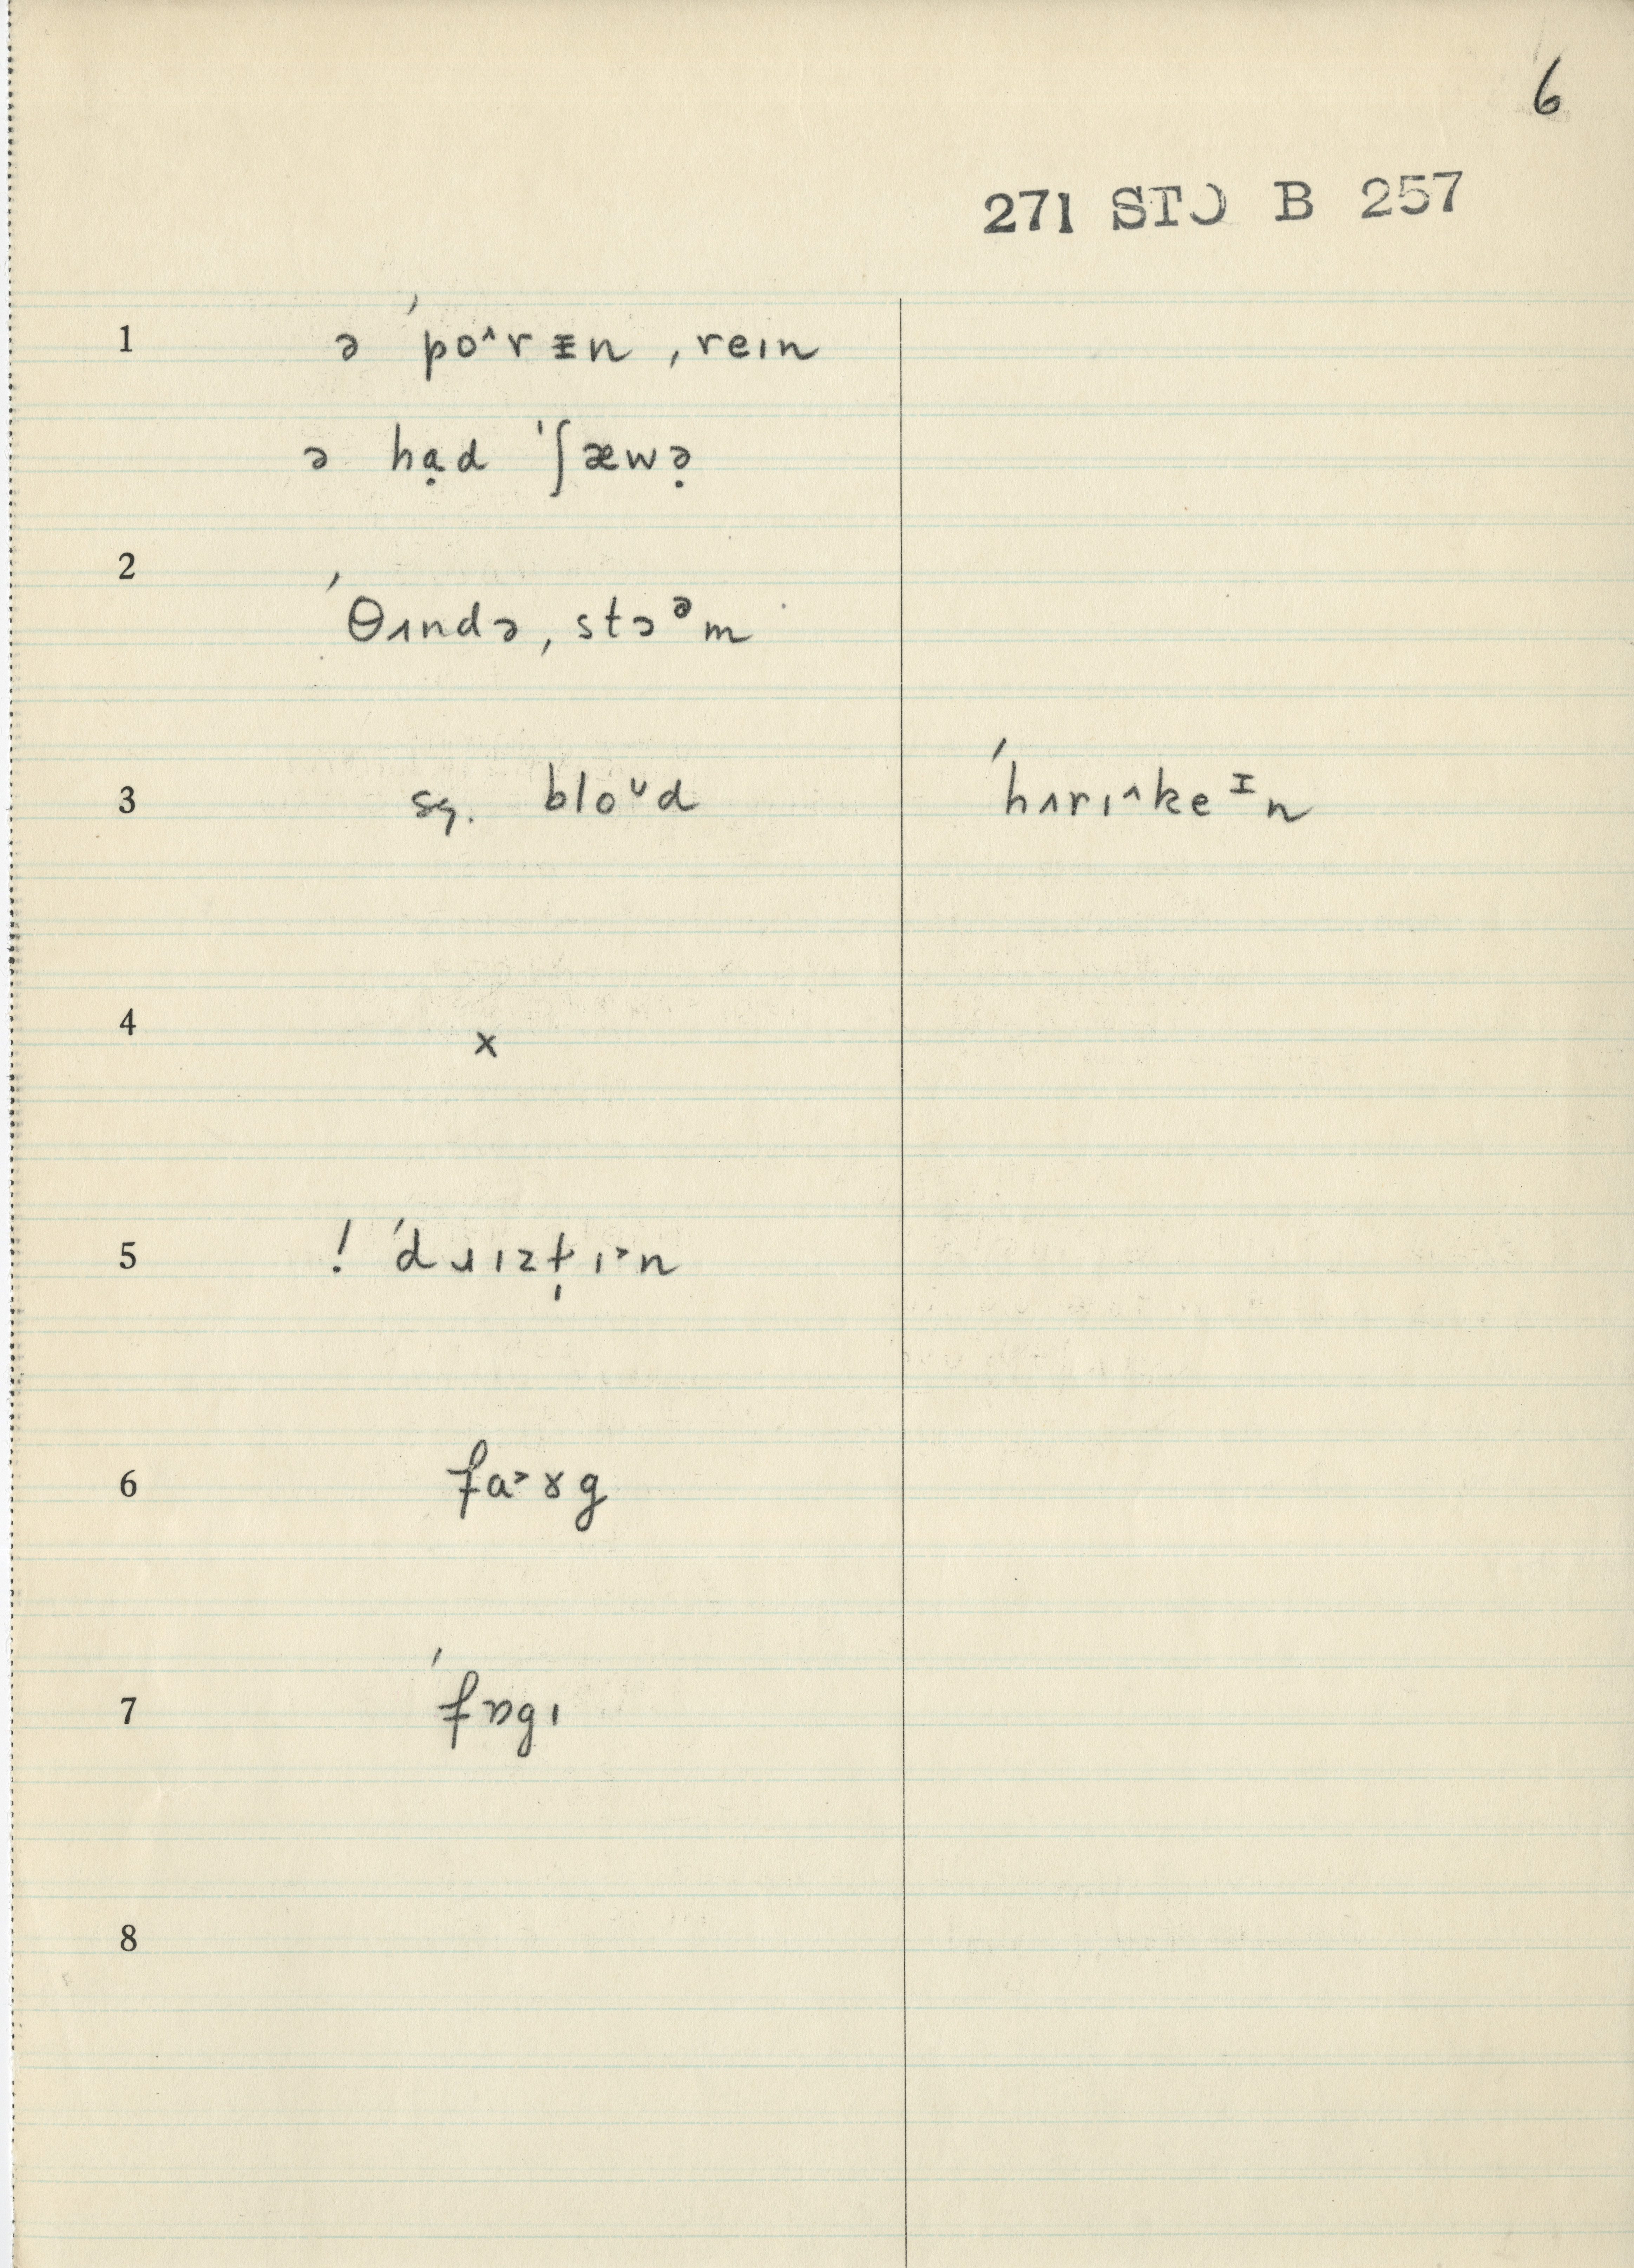 6
271 STO B 257
1 ə ˈpo˄rᵻn ˌreɪn
ə hạd ˈʃæwə̣
2
ˈθɪndə ˌstɔᵊm
3 sg. bloᶷd ˈhɪrɪ˄keᶦn
4 x
5 ! ˈdɹɪzt̩ɪ˃n
6 fa˃ɤg
7 ˈfɒgɪ
8